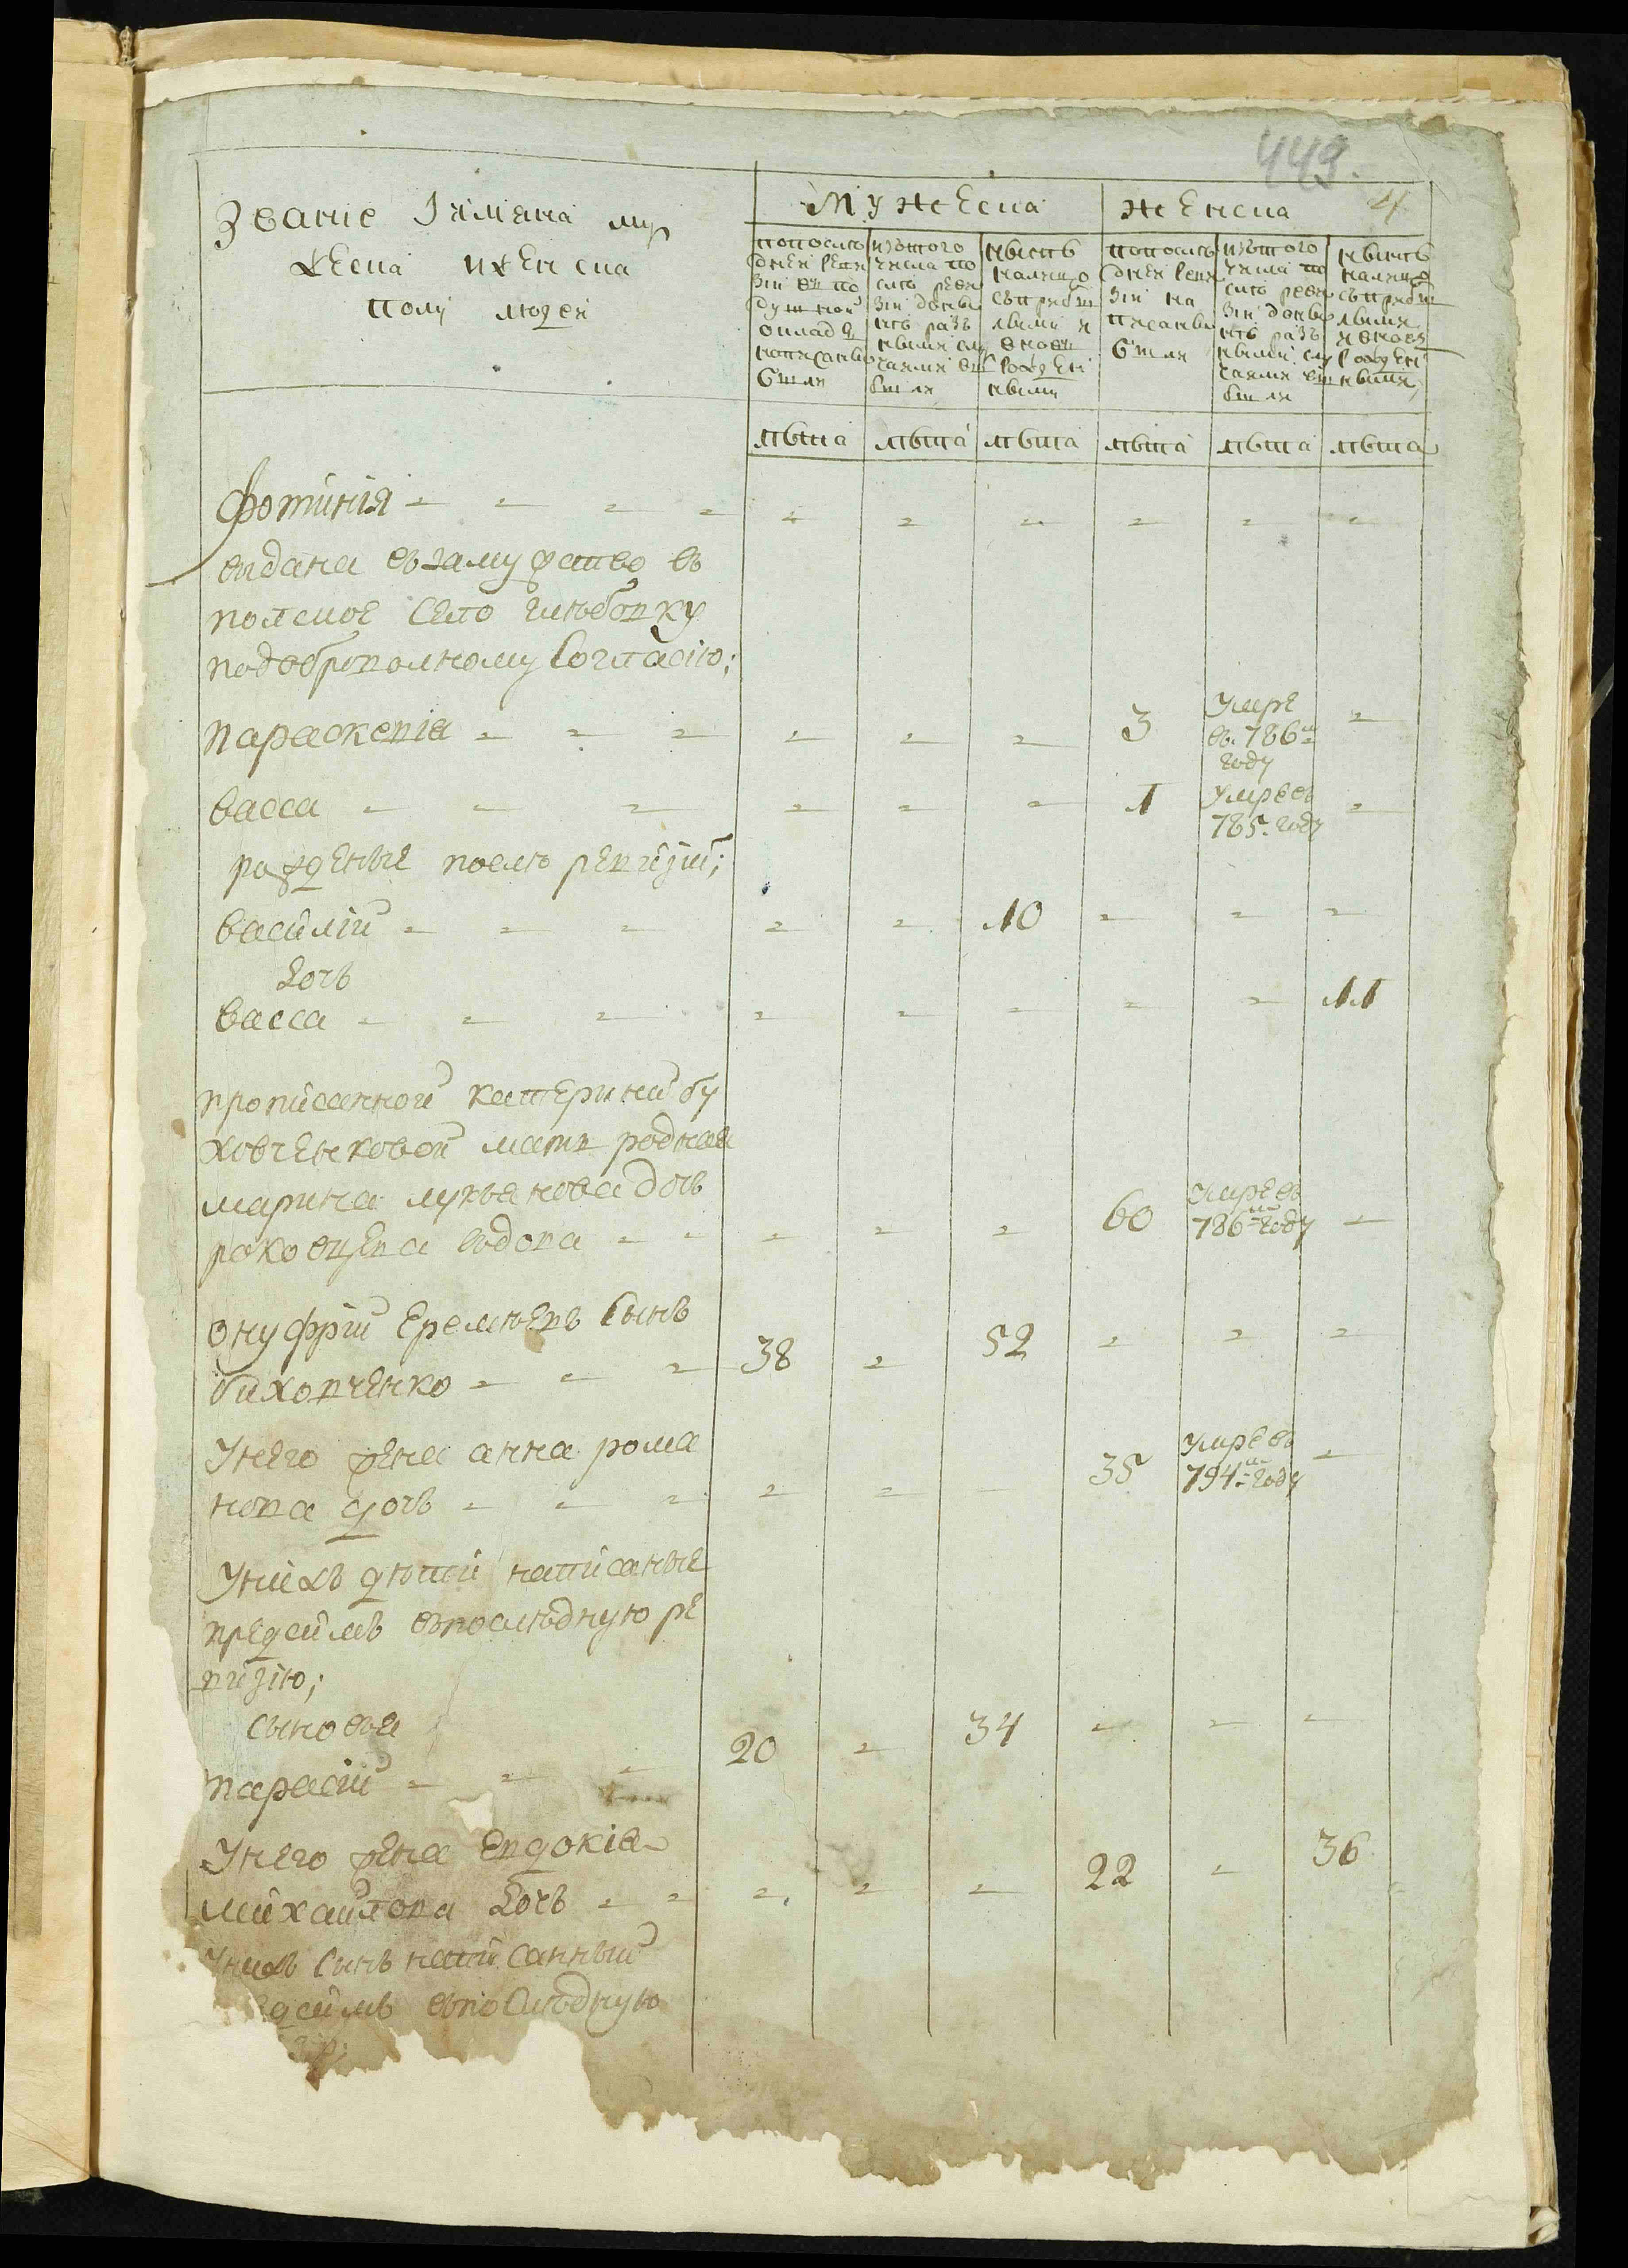 449.
4
Званіе Їимяна му
жеска и женска
полу людей
мужеска
женска
попослѣ
дней реви
зіи въ по
душной
окладъ
написанъ
были
изътого
числа по
слѣ реви
зіи донын
нѣ разъ
ными слу
чаями вы
были
нынѣ
налицо
съприбы
лыми и
вновь
рожден
ными
попослѣ
дней реви
зіи на
писаны
были
изътого
числа по
слѣ реви
зіи донын
нѣ разъ
ными слу
чаями вы
были
нынѣ
налицо
съприбы
лыми
и вновь
рожден
ными
лѣта лѣта лѣта лѣта лѣта лѣта
Фотинія
выдана въ замужство въ
полское село глѣбовку
подобровольному согласію;
параскевія 3 Умре въ 786м году
васса 1 Умре въ 785. году
рожденые послѣ ревизіи;
василій 10
Дочь
васса 11
прописанной катерини бу
ховченковой мать родная
марина лукьянова дочь
раковцева вдова 60 Умре въ 786м году
онуфрій еремѣевъ сынъ
биховченко 38 52
Унего жена анна рома
нова дочь 35 Умре въ 794м году
Унихъ дѣти написаные
предсимъ въпослѣдную ре
визію;
сыновья
тарасій 20 34
Унего жена евдокія
михайлова Дочь 22 36
Унихъ синъ написанный
едсимъ въпослѣдную